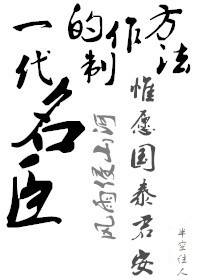 一代
名臣
的制作方法
风雨侵山河
惟愿国泰君安
半空佳人